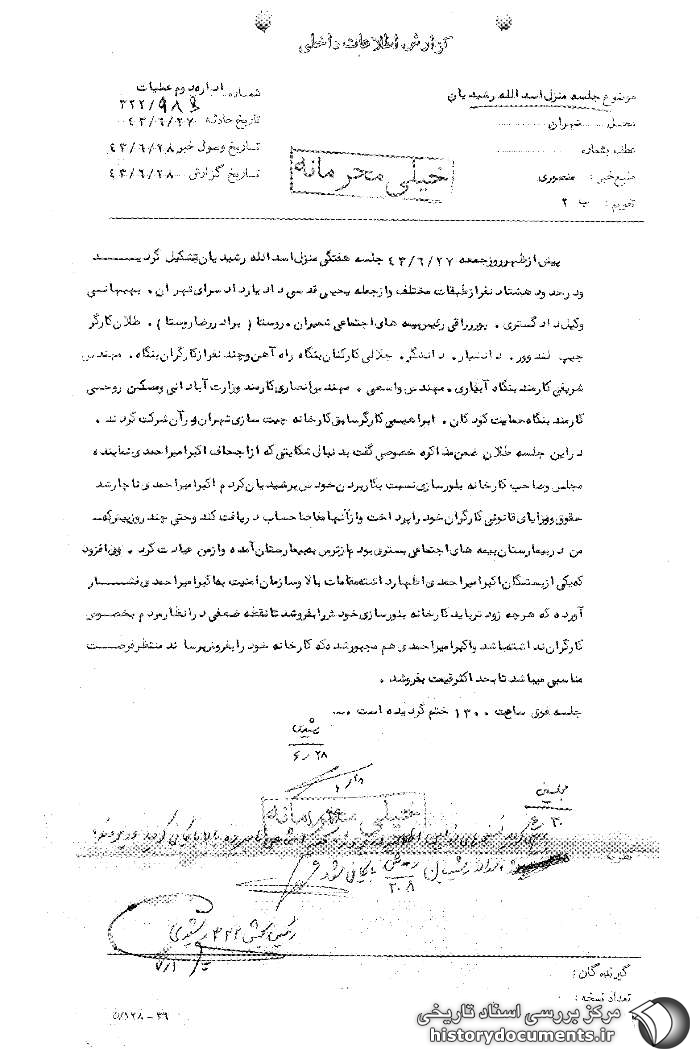 گزارش اطلاعات داخلی
موضوع جلسه منزل اسد الله رشیدیان
محل تهران
عطف بشماره
منبع خبر : منصوری
تقویم : ب ۲
شماره اداره دوم عملیات
۳۲۲/۹۸۸
تاریخ حادثه ۴۳/۶/۲۷
تاریخ وصول خبر ۴۳/۶/۲۸
تاریخ گزارش ۴۳/۶/۲۸
خیلی محرمانه
پیش از ظهر روز جمعه ۴۳/۶/۲۷ جلسه هفتگی منزل اسد الله رشیدیان تشکیل گردید
و در حدود هشتاد نفر از طبقات مختلف و از جمله یحیی قدسی دادیار دادسرای تهران . بهبهانی
وکیل دادگستری . پوررزاقی رئیس بیمه های اجتماعی شمیران . روستا ( برادر رضا روستا ) . طلان کارگر
جیپ لندور . دانشیار . دانشگر . جلالی کارکنان بنگاه راه آهن و چند نفر از کارگران بنگاه . مهندس
شریفی کارمند بنگاه آبیاری . مهندس واسعی . مهندس انصاری کارمند وزارت آبادانی و مسکن روحی
کارمند بنگاه حمایت کودکان . ابراهیمی کارگر سابق کارخانه چیت سازی تهران در آن شرکت کردند .
در این جلسه طلان ضمن مذاکره خصوصی گفت بدنبال شکایتی که از اجحاف اکبر امیراحمدی نماینده
مجلس و صاحب کارخانه بلورسازی نسبت بکاربردن خودش برشیدیان کردم اکبر امیراحمدی ناچار شد
حقوق و مزایای قانونی کارگران خود را پرداخت و از آنها مفاصا حساب دریافت کند و حتی چند روز پیش که
من در بیمارستان بیمه های اجتماعی بستری بودم از ترس به بیمارستان آمده و از من عیادت کرد . وی افزود
که یکی از بستگان اکبر امیراحمدی اظهار داشته مقامات بالا و سازمان امنیت به اکبر امیراحمدی فشار
آورده که هرچه زودتر باید کارخانه بلورسازی خودش را بفروشد تا نقطه ضعفی در انظار مردم بخصوص
کارگران نداشته باشد و اکبر امیراحمدی هم مجبور شده که کارخانه خود را بفروش برساند منتظر فرصت
مناسبی میباشد تا بحد اکثر قیمت بفروشد .
جلسه فوق ساعت ۱۳۰۰ ختم گردیده است .
۶/۲۸
خیلی محرمانه
۳۰
رئیس بخش ۳۲۲ رشیدی
۷/۱
گیرندگان :
تعداد نسخه :
۵/۱۲۸ - ۳۹
مرکز بررسی اسناد تاریخی
historydocuments.ir